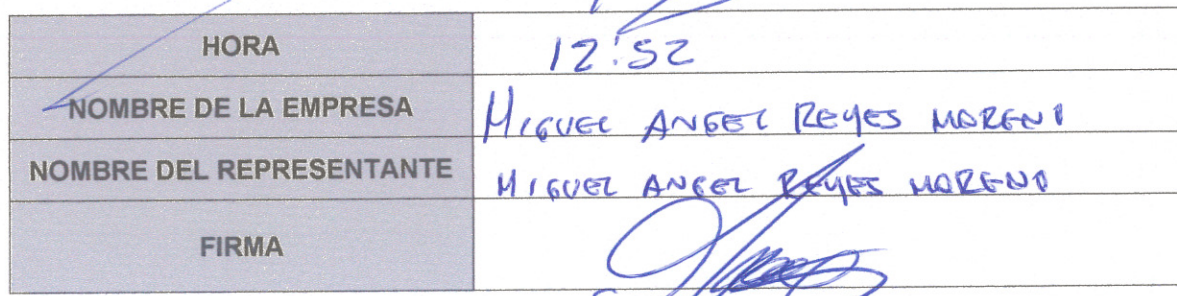 HORA 12:52
NOMBRE DE LA EMPRESA MIGUEL ANGEL REYES MORENO
NOMBRE DEL REPRESENTANTE MIGUEL ANGEL REYES MORENO
FIRMA